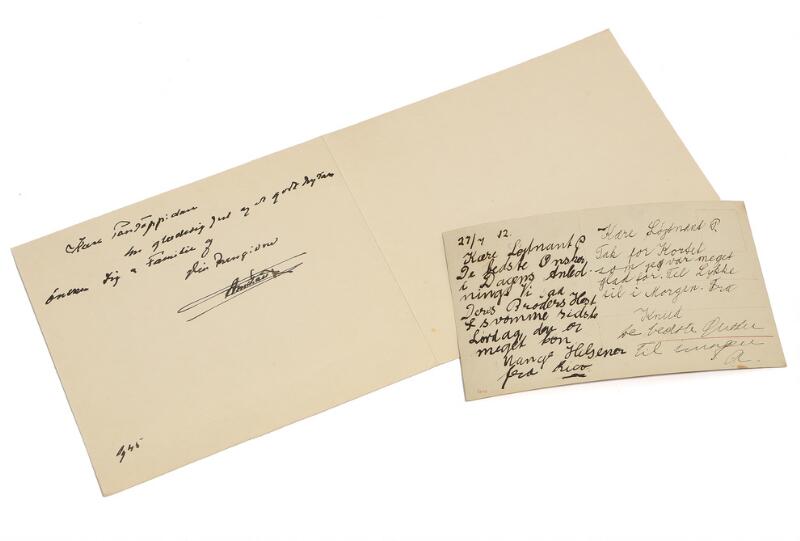 Kære Pontoppidan
En glædelig Jul og et godt Nytaar
ønskes Dig & Familie af
Din hengivne
1945
27/4 12.
Kære Løjtnant P
De bedste Ønsker
i Dagens Anled-
ning. Vi saa
Jeres Broders Hest
svømme sidste
Lørdag den er
meget køn
Mange Hilsener
fra Rico
Kære Løjtnant P.
Tak for Kortet
som jeg var meget
glad for. Til Lykke
til i Morgen. Fra
Knud
De bedste Ønsker
til imorgen
A.